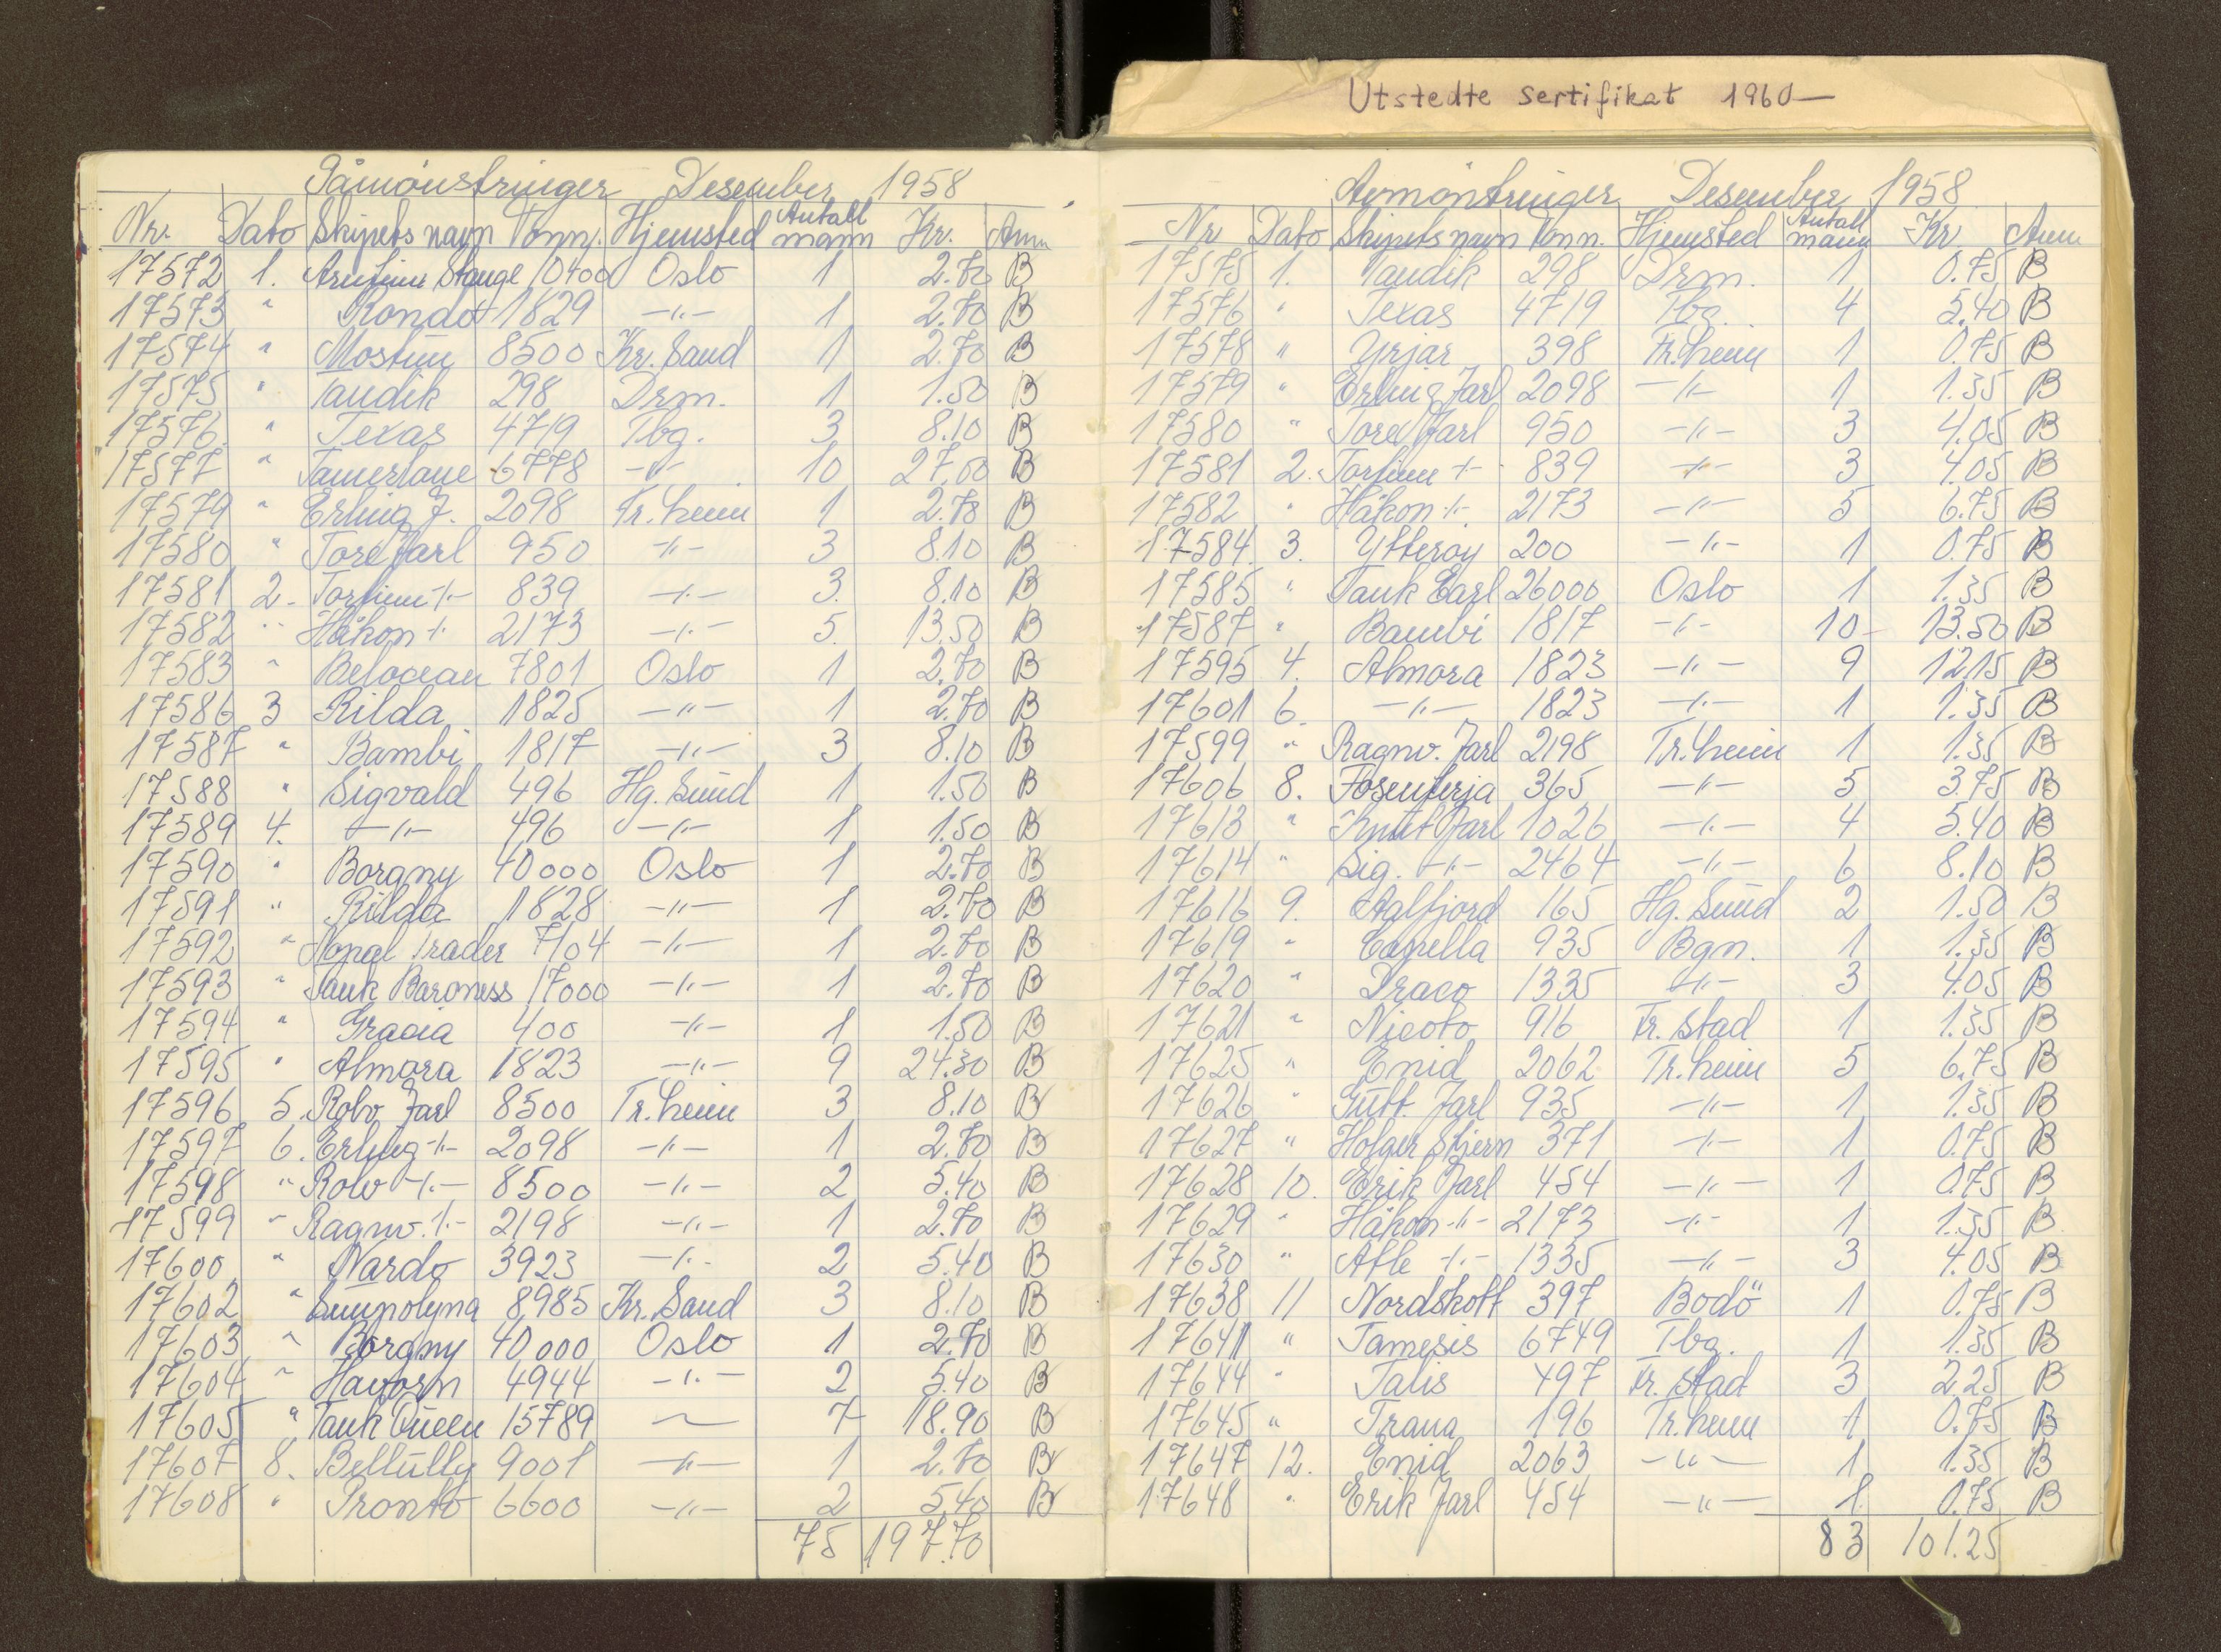 Utstedte sertifikat 1960—
Påmönstringer Desember 1958
Nr. Dato Skipets navn Tonn. Hjemsted Antall mann Kr. Anm
17572 1. Stange 10400 Oslo 1 2.70 B
17573 " Rondo 1829 -"- 1 2.70 B
17574 " Mostun 8500 Kr. Sand 1 2.70 B
17575 " Tandik 298 Drm. 1 1.50 B
17576 " Texas 4719 Tbg. 3 8.10 B
17577 " Tamerlane 6778 -"- 10 27.00 B
17579 " Erling J. 2098 Tr.heim 1 2.70 B
17580 " Tore Jarl 950 -"- 3 8.10 B
17581 2. Torfinn -"- 839 -"- 3 8.10 B
17582 " Håkon -"- 2173 -"- 5 13.50 B
17583 " Belocean 7801 Oslo 1 2.70 B
17586 3 Rilda 1825 -"- 1 2.70 B
17587 " Bambi 1817 -"- 3 8.10 B
17588 " Sigvald 496 Hg. Sund 1 1.50 B
17589 4. -"- 496 -"- 1 1.50 B
17590 " Borgny 40000 Oslo 1 2.70 B
17591 " Rilda 1828 -"- 1 2.70 B
17592 " Nopal Trader 7104 -"- 1 2.70 B
17593 " Tank Baroness 17000 -"- 1 2.70 B
17594 " Gracia 400 -"- 1 1.50 B
17595 " Almora 1823 -"- 9 24.30 B
17596 5. Rolv Jarl 8500 Tr.heim 3 8.10 B
17597 6. Erling -"- 2098 -"- 1 2.70 B
17598 " Rolv -"- 8500 -"- 2 5.40 B
17599 " Ragnv. -"- 2198 -"- 1 2.70 B
17600 " Nardo 3923 -"- 2 5.40 B
17602 " Sunpolyna 8985 Kr. Sand 3 8.10 B
17603 " Borgny 40000 Oslo 1 2.70 B
17604 " Havörn 4944 -"- 2 5.40 B
17605 " Tank Queen 15789 — 7 18.90 B
17607 8. Beltully 9001 -"- 1 2.70 B
17608 " Pronto 6600 -"- 2 5.40 B
75 197.70
Avmöntringer Desember 1958
Nr Dato Skipets navn Tonn. Hjemsted Antall mann Kr Anm
17575 1. Tandik 298 Drm. 1 0.75 B
17576 " Texas 4719 Tbg. 4 5.40 B
17578 " Yrjar 398 Tr.heim 1 0.75 B
17579 " Erling Jarl 2098 -"- 1 1.35 B
17580 " Tore Jarl 950 -"- 3 4.05 B
17581 2. Torfinn -"- 839 -"- 3 4.05 B
17582 " Håkon -"- 2173 -"- 5 6.75 B
17584 3. Ytteroy 200 -"- 1 0.75 B
17585 " Tank Earl 26000 Oslo 1 1.35 B
17587 " Bambi 1817 -"- 10 13.50 B
17595 4. Almora 1823 -"- 9 12.15 B
17601 6. -"- 1823 -"- 1 1.35 B
17599 " Ragnv. Jarl 2198 Tr.heim 1 1.35 B
17606 8. Fosenferja 365 -"- 5 3.75 B
17613 " Knut Jarl 1026 -"- 4 5.40 B
17614 " Sig. -"- 2464 -"- 6 8.10 B
17616 9. Aalfjord 165 Hg. Sund 2 1.50 B
17619 " Capella 935 Bgn. 1 1.35 B
17620 " Draco 1335 -"- 3 4.05 B
17621 " Nicoto 916 Fr. stad 1 1.35 B
17625 " Enid 2062 Tr.heim 5 6.75 B
17626 " Gutt. Jarl 935 -"- 1 1.35 B
17627 " Holger Stjern 371 -"- 1 0.75 B
17628 10. Erik Jarl 454 -"- 1 0.75 B
17629 " Håkon -"- 2173 -"- 1 1.35 B
17630 " Atle -"- 1335 -"- 3 4.05 B
17638 11 Nordskott 397 Bodö 1 0.75 B
17641 " Tamesis 6749 Tbg. 1 1.35 B
17644 " Talis 497 Fr. stad 3 2.25 B
17645 " Trana 196 Tr.heim 1 0.75 B
17647 12. Enid 2063 -"- 1 1.35 B
17648 " Erik Jarl 454 -"- 1 0.75 B
83 101.25